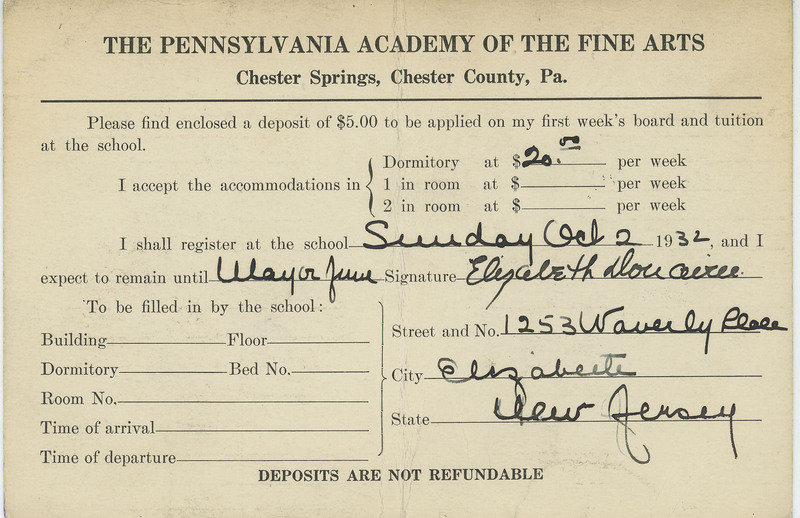 THE PENNSYLVANIA ACADEMY OF THE FINE ARTS
Chester Springs, Chester County, Pa.
Please find enclosed a deposit of $5.00 to be applied on my first week's board and tuition
at the school.
I accept the accommodations in
Dormitory at $20.00 per week
1 in room at $ per week
2 in room at $ per week
I shall register at the school Sunday Oct 2 1932, and I
expect to remain until May or June Signature Elizabeth
To be filled in by the school:
Building Floor
Dormitory Bed No.
Room No.
Time of arrival
Time of departure
Street and No. 1253 Waverly Place
City Elizabeth
State New Jersey
DEPOSITS ARE NOT REFUNDABLE